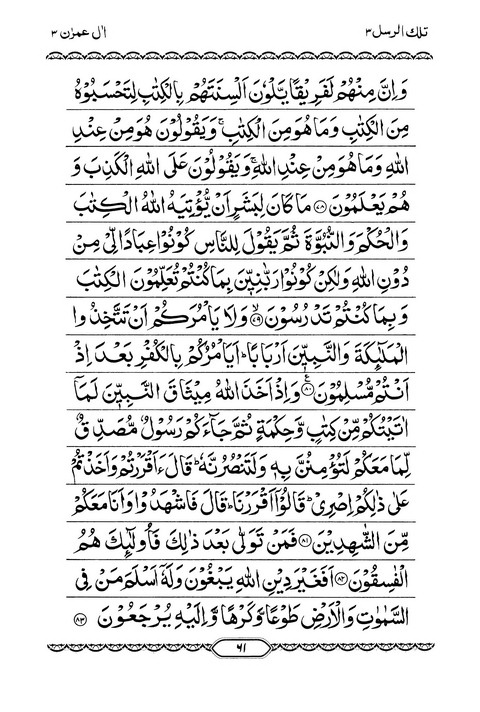 تلك الرسل ٣
اٰل عمرٰن ٣
وَاِنَّ مِنْهُمْ لَفَرِيْقًا يَّلْوٗنَ اَلْسِنَتَهُمْ بِالْكِتٰبِ لِتَحْسَبُوْهُ
مِنَ الْكِتٰبِ وَمَا هُوَ مِنَ الْكِتٰبِ ۚ وَيَقُوْلُوْنَ هُوَ مِنْ عِنْدِ
اللّٰهِ وَمَا هُوَ مِنْ عِنْدِ اللّٰهِ ۚ وَيَقُوْلُوْنَ عَلَى اللّٰهِ الْكَذِبَ وَ
هُمْ يَعْلَمُوْنَ ﴿٧٨﴾ مَا كَانَ لِبَشَرٍ اَنْ يُّؤْتِيَهُ اللّٰهُ الْكِتٰبَ
وَالْحُكْمَ وَالنُّبُوَّةَ ثُمَّ يَقُوْلَ لِلنَّاسِ كُوْنُوْا عِبَادًا لِّيْ مِنْ
دُوْنِ اللّٰهِ وَلٰكِنْ كُوْنُوْا رَبّٰنِيّٖنَ بِمَا كُنْتُمْ تُعَلِّمُوْنَ الْكِتٰبَ
وَبِمَا كُنْتُمْ تَدْرُسُوْنَ ۙ﴿٧٩﴾ وَلَا يَاْمُرَكُمْ اَنْ تَتَّخِذُوا
الْمَلٰٓئِكَةَ وَالنَّبِيّٖنَ اَرْبَابًا ؕ اَيَاْمُرُكُمْ بِالْكُفْرِ بَعْدَ اِذْ
اَنْتُمْ مُّسْلِمُوْنَ ﴿٨٠﴾ ع وَاِذْ اَخَذَ اللّٰهُ مِيْثَاقَ النَّبِيّٖنَ لَمَاۤ
اٰتَيْتُكُمْ مِّنْ كِتٰبٍ وَّحِكْمَةٍ ثُمَّ جَآءَكُمْ رَسُوْلٌ مُّصَدِّقٌ
لِّمَا مَعَكُمْ لَتُؤْمِنُنَّ بِهٖ وَلَتَنْصُرُنَّهٗ ؕ قَالَ ءَاَقْرَرْتُمْ وَاَخَذْتُمْ
عَلٰى ذٰلِكُمْ اِصْرِيْ ؕ قَالُوْۤا اَقْرَرْنَا ؕ قَالَ فَاشْهَدُوْا وَاَنَا مَعَكُمْ
مِّنَ الشّٰهِدِيْنَ ﴿٨١﴾ فَمَنْ تَوَلّٰى بَعْدَ ذٰلِكَ فَاُولٰٓئِكَ هُمُ
الْفٰسِقُوْنَ ﴿٨٢﴾ اَفَغَيْرَ دِيْنِ اللّٰهِ يَبْغُوْنَ وَلَهٗۤ اَسْلَمَ مَنْ فِي
السَّمٰوٰتِ وَالْاَرْضِ طَوْعًا وَّكَرْهًا وَّاِلَيْهِ يُرْجَعُوْنَ ﴿٨٣﴾
٦١